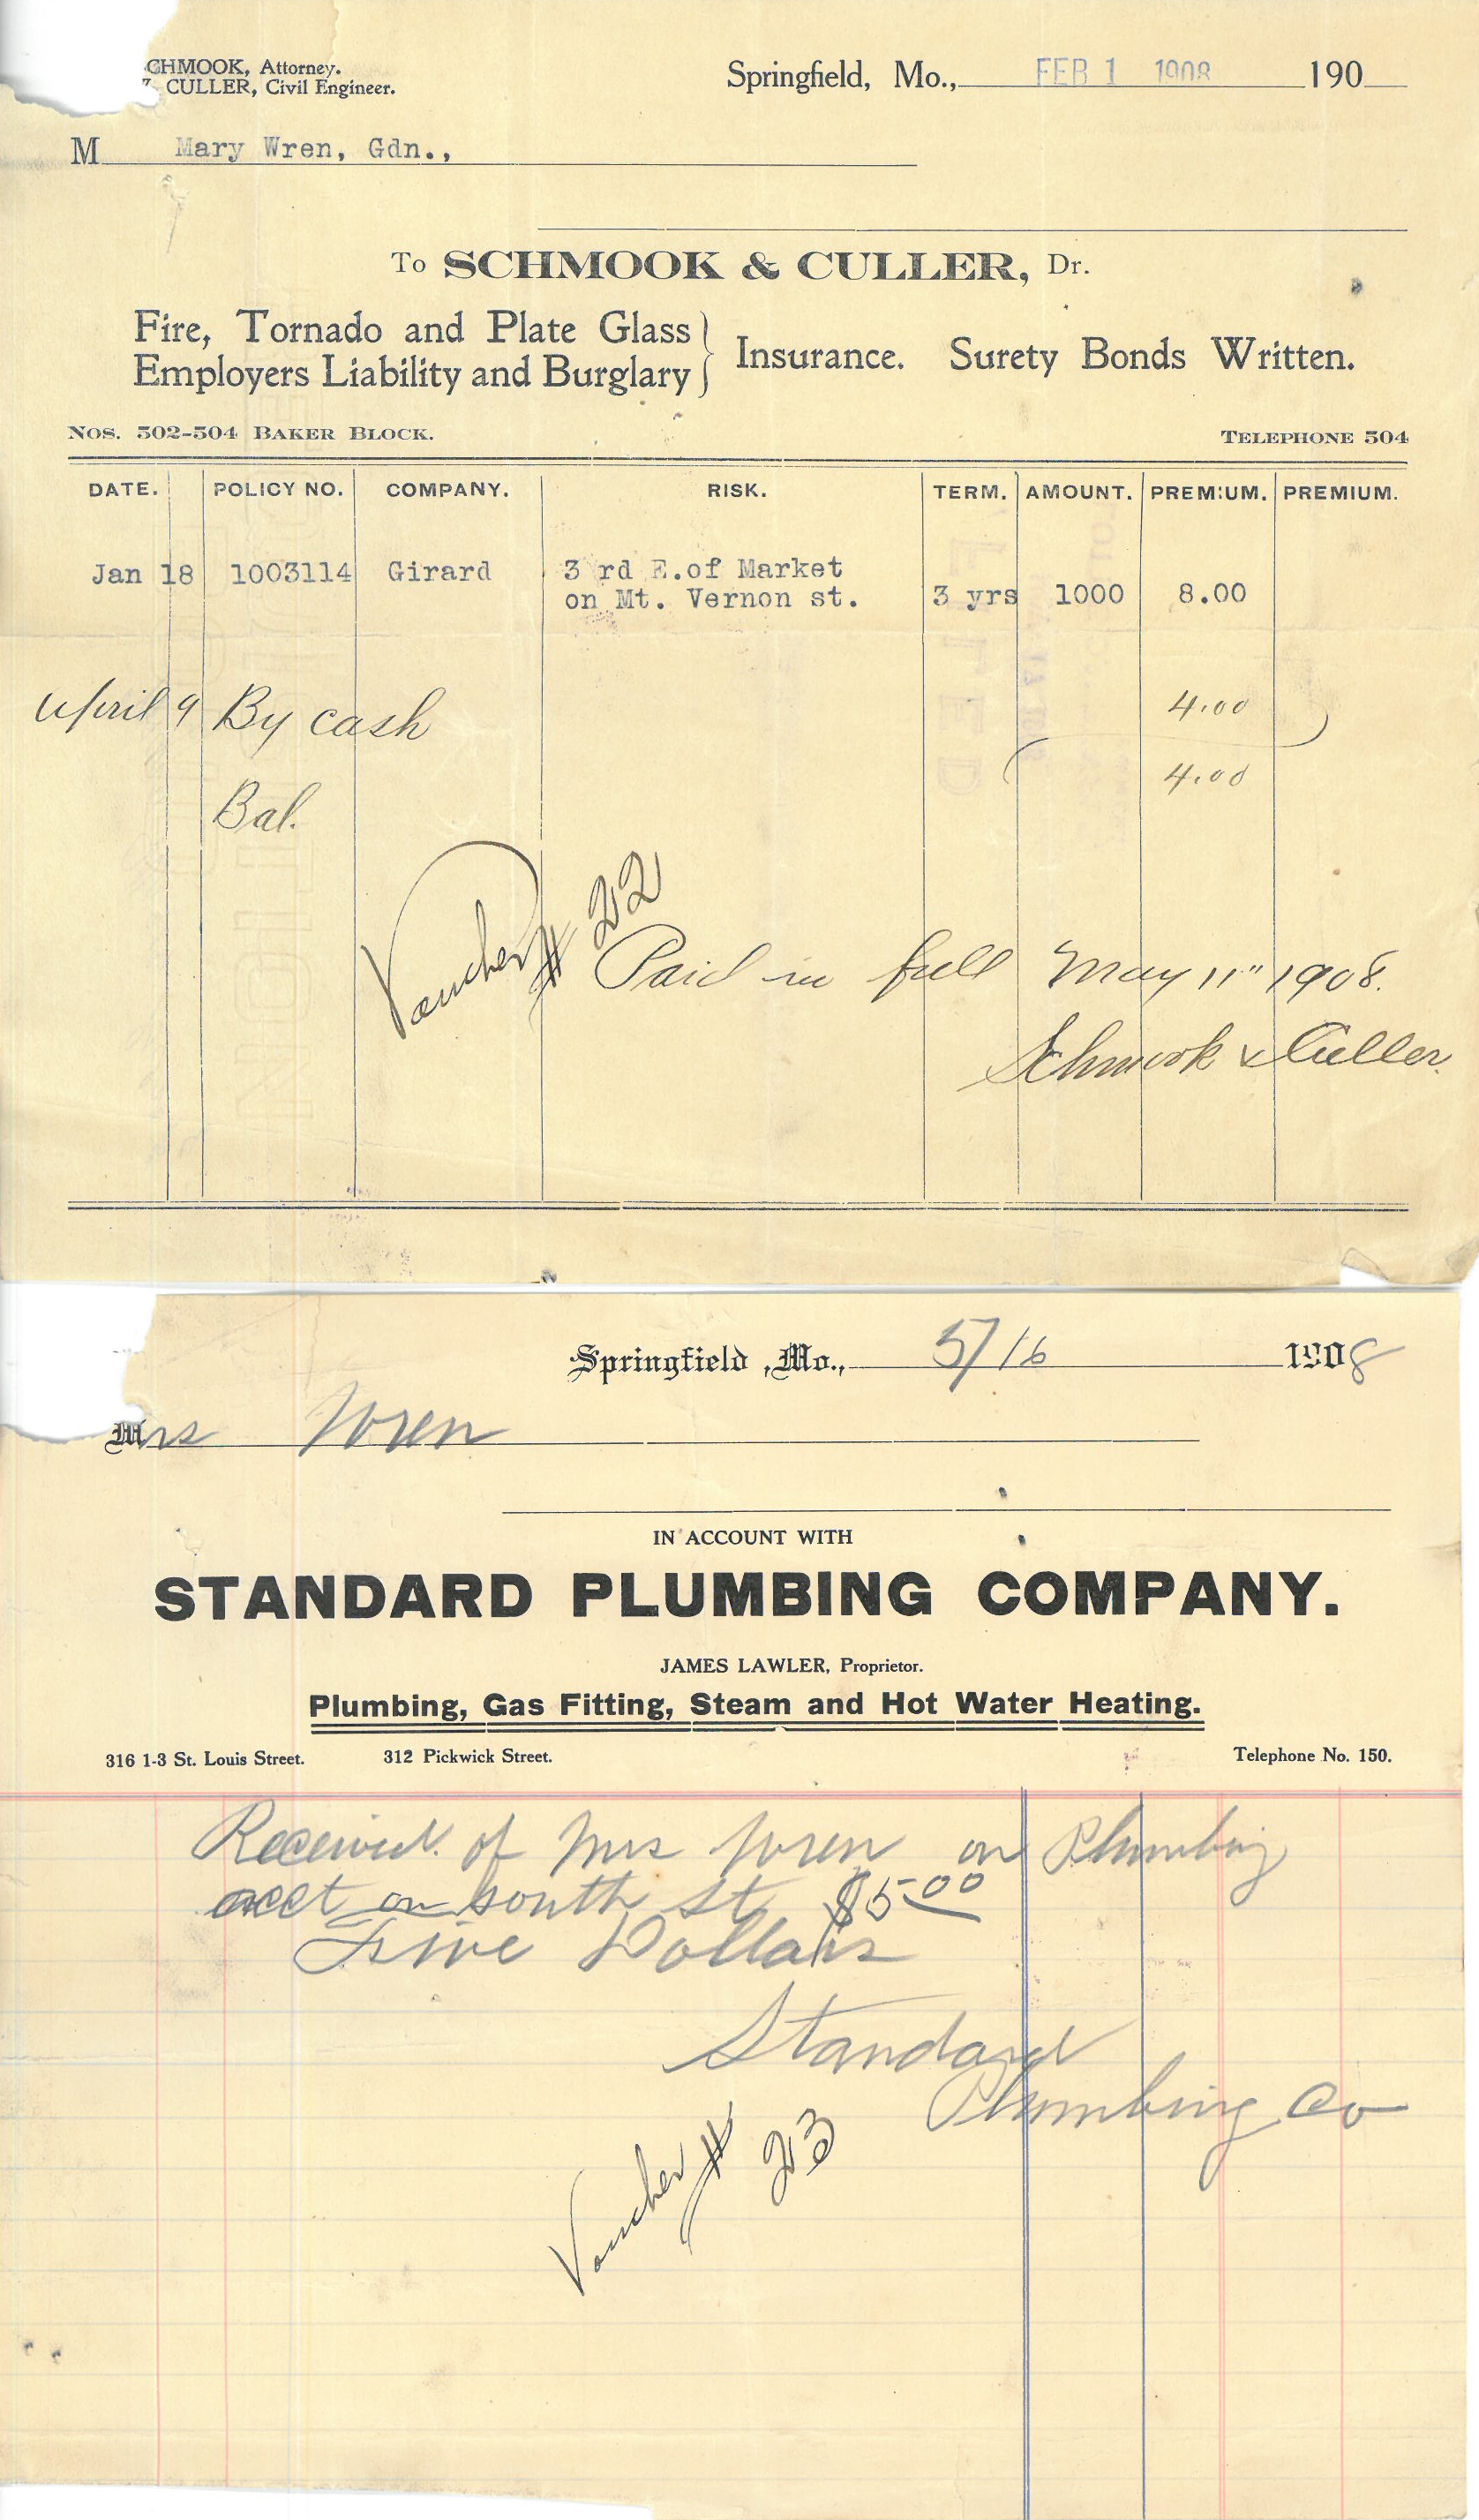 CHMOOK, Attorney.
CULLER, Civil Engineer.
Springfield, Mo., FEB 1 1908 190
M Mary Wren, Gdn.,
To SCHMOOK & CULLER, Dr.
Fire, Tornado and Plate Glass
Employers Liability and Burglary
Insurance. Surety Bonds Written.
Nos. 502-504 Baker Block. Telephone 504
DATE. POLICY NO. COMPANY. RISK. TERM. AMOUNT. PREMIUM. PREMIUM.
Jan 18 1003114 Girard 3 rd E.of Market
on Mt. Vernon st. 3 yrs 1000 8.00
April 9 By cash 4.00
Bal. 4.00
Voucher # 22
Paid in full May 11" 1908.
Schmook & Culler.
Springfield, Mo., 5/16 1908
Mrs Wren
IN ACCOUNT WITH
STANDARD PLUMBING COMPANY.
JAMES LAWLER, Proprietor.
Plumbing, Gas Fitting, Steam and Hot Water Heating.
316 1-3 St. Louis Street. 312 Pickwick Street. Telephone No. 150.
Received of Mrs Wren on Plumbing
acct on south St $5.00
Five Dollars
Standard
Plumbing Co
Voucher # 23